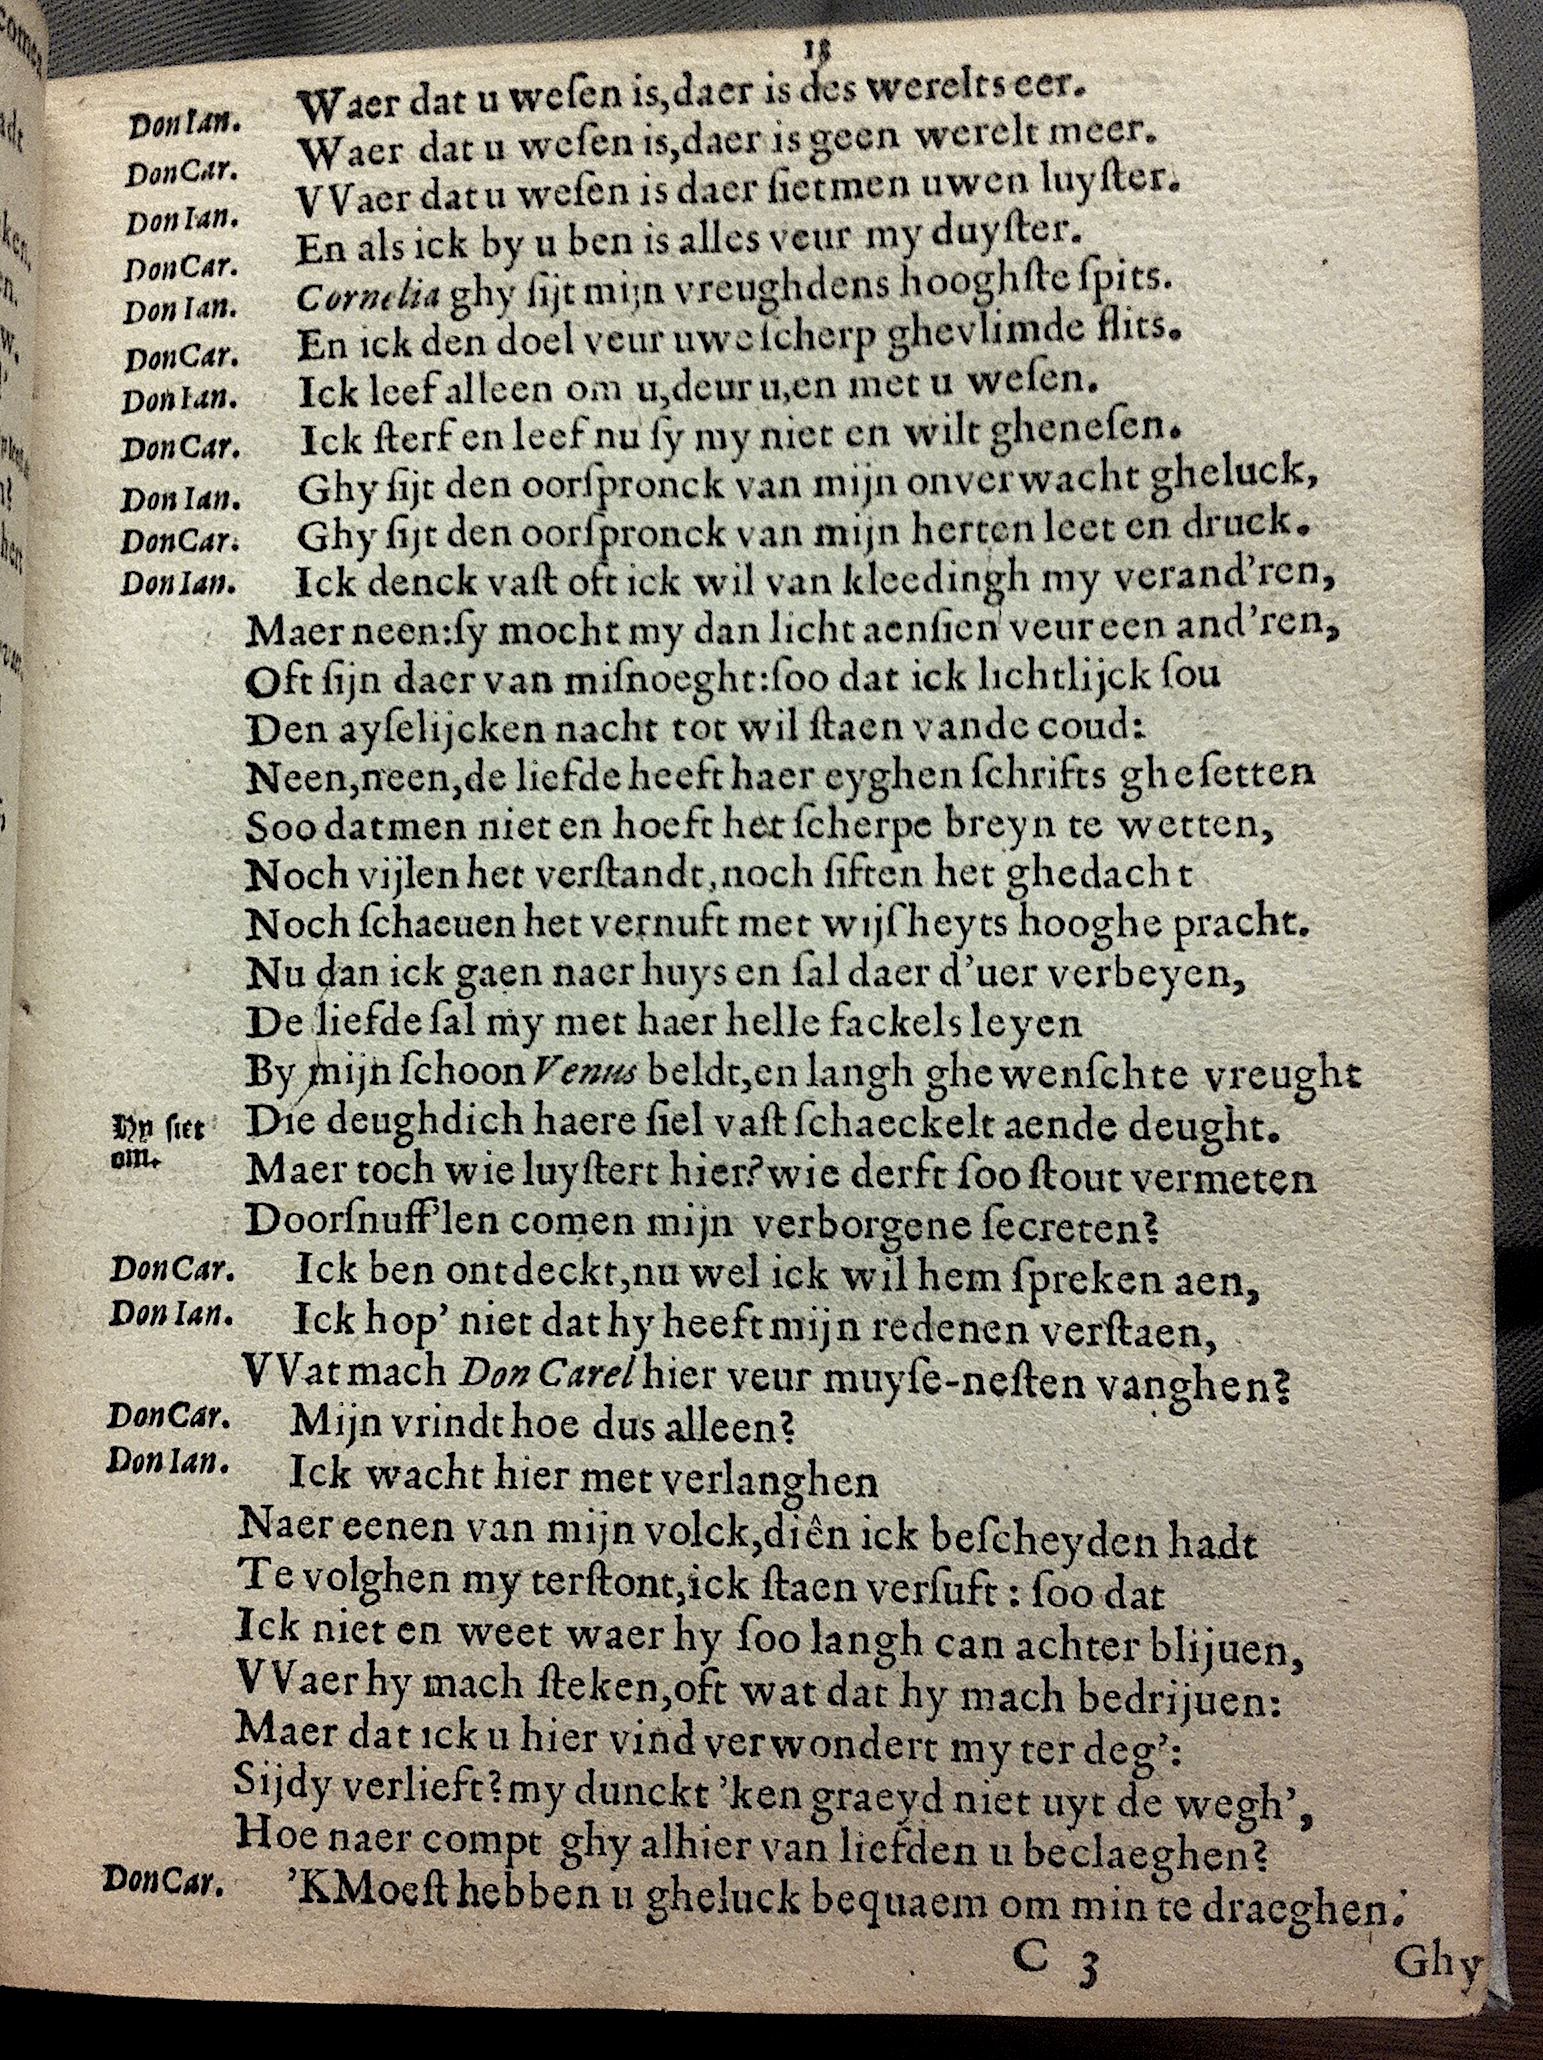 13
Don Ian. Waer dat u weſen is,daer is des werelts eer.
Don Car. Waer dat u weſen is,daer is geen werelt meer.
Don Ian. VVaer dat u weſen is daer ſietmen uwen luyſter.
Don Car. En als ick by u ben is alles veur my duyſter.
Don Ian. Cornelia ghy ſijt mijn vreughdens hooghſte ſpits.
Don Car. En ick den doel veur uwe ſcherp ghevlimde flits.
Don Ian. Ick leef alleen om u,deur u,en met u weſen.
Don Car. Ick ſterf en leef nu ſy my niet en wilt gheneſen.
Don Ian. Ghy ſijt den oorſpronck van mijn onverwacht gheluck,
Don Car. Ghy ſijt den oorſpronck van mijn herten leet en druck.
Don Ian. Ick denck vaſt oft ick wil van kleedingh my verand'ren,
Maer neen:ſy mocht my dan licht aenſien veur een and'ren,
Oft ſijn daer van miſnoeght:ſoo dat ick lichtlijck ſou
Den ayſelijcken nacht tot wil ſtaen vande coud:
Neen,neen,de liefde heeft haer eyghen ſchrifts gheſetten
Soo datmen niet en hoeft het ſcherpe breyn te wetten,
Noch vijlen het verſtandt,noch ſiften het ghedacht
Noch ſchaeuen het vernuft met wijſheyts hooghe pracht.
Nu dan ick gaen naer huys en ſal daer d'uer verbeyen,
De liefde ſal my met haer helle fackels leyen
By mijn ſchoon Venus beldt,en langh ghewenſchte vreught
Hy ſiet om. Die deughdich haere ſiel vaſt ſchaeckelt aende deught.
Maer toch wie luyſtert hier?wie derft ſoo ſtout vermeten
Doorſnuff'len comen mijn verborgene ſecreten?
Don Car. Ick ben ontdeckt,nu wel ick wil hem ſpreken aen,
Don Ian. Ick hop' niet dat hy heeft mijn redenen verſtaen,
VVat mach Don Carel hier veur muyſe-neſten vanghen?
Don Car. Mijn vrindt hoe dus alleen?
Don Ian. Ick wacht hier met verlanghen
Naer eenen van mijn volck,diên ick beſcheyden hadt
Te volghen my terſtont,ick ſtaen verſuft : ſoo dat
Ick niet en weet waer hy ſoo langh can achter blijuen,
VVaer hy mach ſteken,oft wat dat hy mach bedrijuen:
Maer dat ick u hier vind verwondert my ter deg':
Sijdy verlieft?my dunckt 'ken graeyd niet uyt de wegh',
Hoe naer compt ghy alhier van liefden u beclaeghen?
Don Car. 'KMoeſt hebben u gheluck bequaem om min te draeghen.
C 3 Ghy